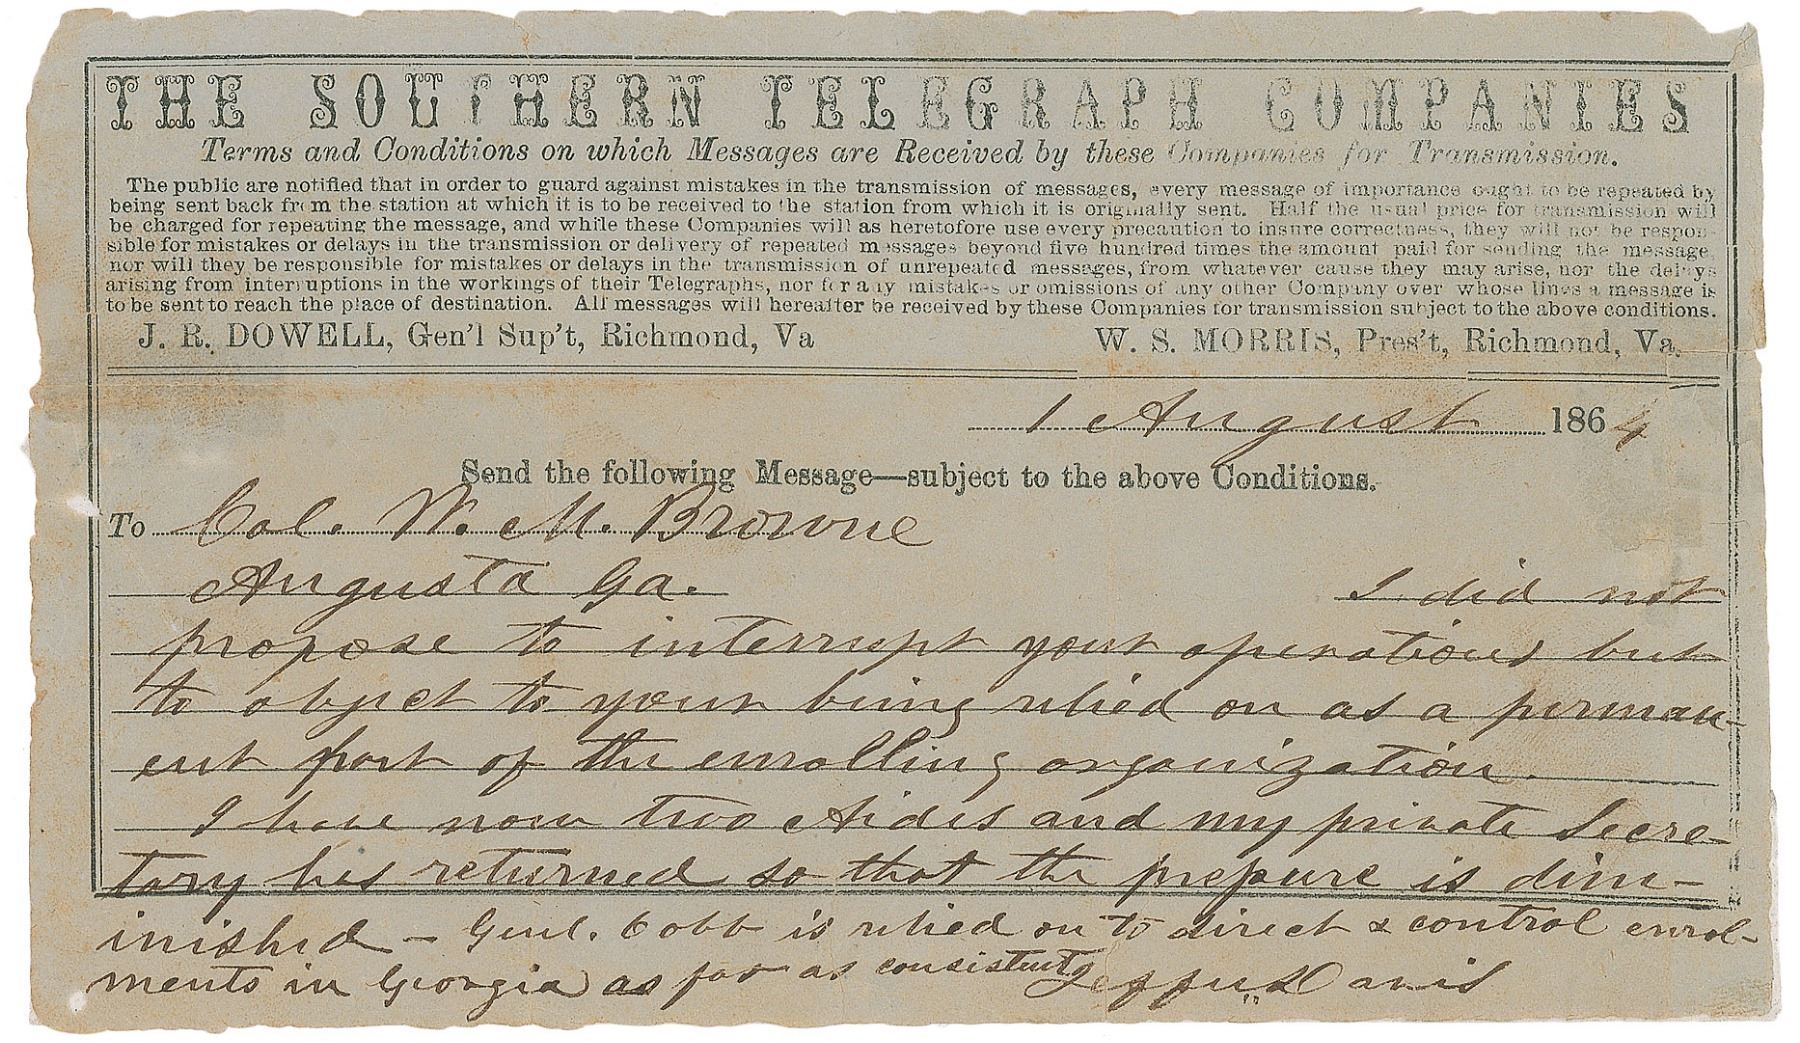 THE SOUTHERN TELEGRAPH COMPANIES
Terms and Conditions on which Messages are Received by these Companies for Transmission.
The public are notified that in order to guard against mistakes in the transmission of messages, every message of importance ought to be repeated by
being sent back from the station at which it is to be received to the station from which it is originally sent. Half the usual price for transmission will
be charged for repeating the message, and while these Companies will as heretofore use every precaution to insure correctness, they will not be respon-
sible for mistakes or delays in the transmission or delivery of repeated messages beyond five hundred times the amount paid for sending the message,
nor will they be responsible for mistakes or delays in the transmission of unrepeated messages, from whatever cause they may arise, nor the delays
arising from interruptions in the workings of their Telegraphs, nor for any mistakes or omissions of any other Company over whose lines a message is
to be sent to reach the place of destination. All messages will hereafter be received by these Companies for transmission subject to the above conditions.
J. R. DOWELL, Gen'l Sup't, Richmond, Va W. S. MORRIS, Pres't, Richmond, Va.
1 August 1864
Send the following Message—subject to the above Conditions.
To Col. W. M. Browne
Augusta Ga. I did not
propose to interrupt your operations but
to object to your being relied on as a perman-
ent part of the enrolling organization.
I have now two Aides and my private Secre-
tary has returned so that the prepure is dim-
inished - Genl. Cobb is relied on to direct & control enrol-
ments in Georgia as far as consistent Jeffn Davis